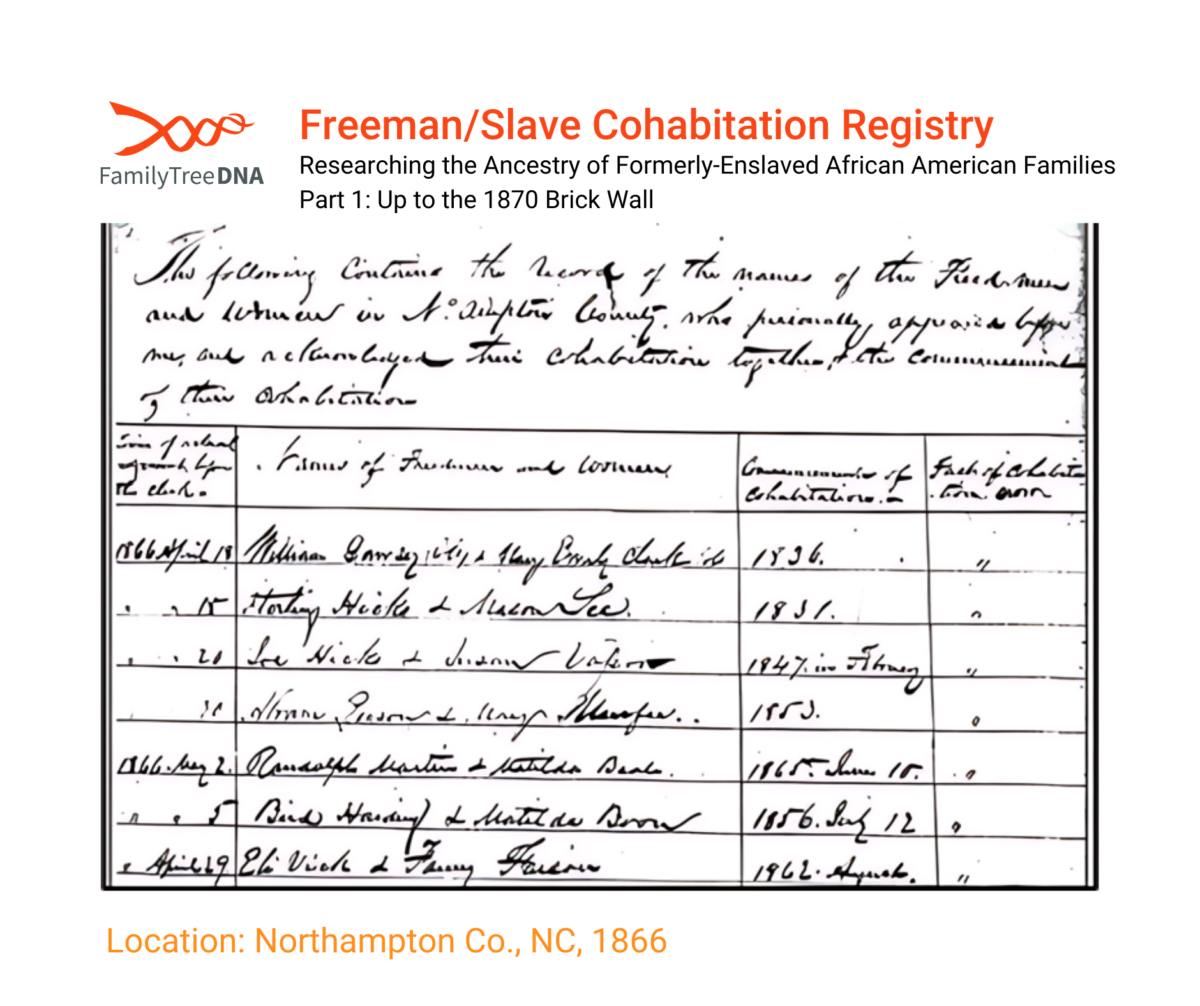 FamilyTreeDNA
Freeman/Slave Cohabitation Registry
Researching the Ancestry of Formerly-Enslaved African American Families
Part 1: Up to the 1870 Brick Wall
The following Contains the Record of the names of the Freedmen
and Women in No. Ampton County, who personally, appeared before
me, and acknowledged their Cohabitation together, & the Commencement
of their Cohabitation
the clerk. Names of Freedmen and Women Commencement of Cohabitation. Fact of Cohabitation
1866 April 18 William & Mary Clark 1836. "
" " 18 Sterling Hicks & Mason Lee. 1831. "
" " 20 Joe Hicks & Susan 1847. in February "
1853. "
1866. May 2. Randolph Martin & Matilda 1865. June 10. "
" " 5 Bird & Matilda 1856. July 12 "
" April 29 Eli Vick & Fanny Faison 1962. August. "
Location: Northampton Co., NC, 1866